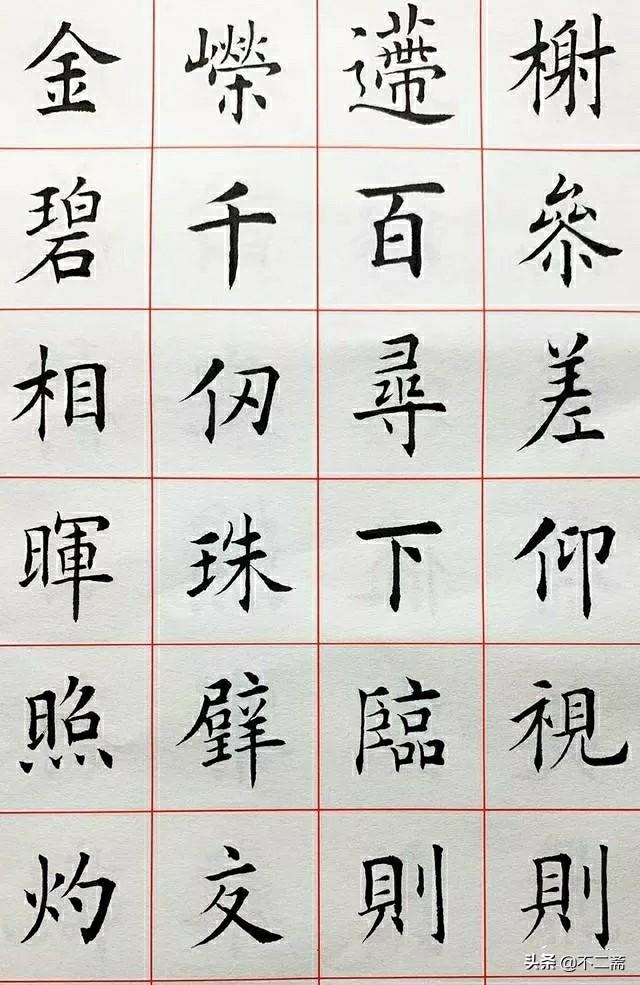 榭參差仰視則
遰百尋下臨則
嶸千仞珠壁交
金碧相暉照灼
头条 @不二斋